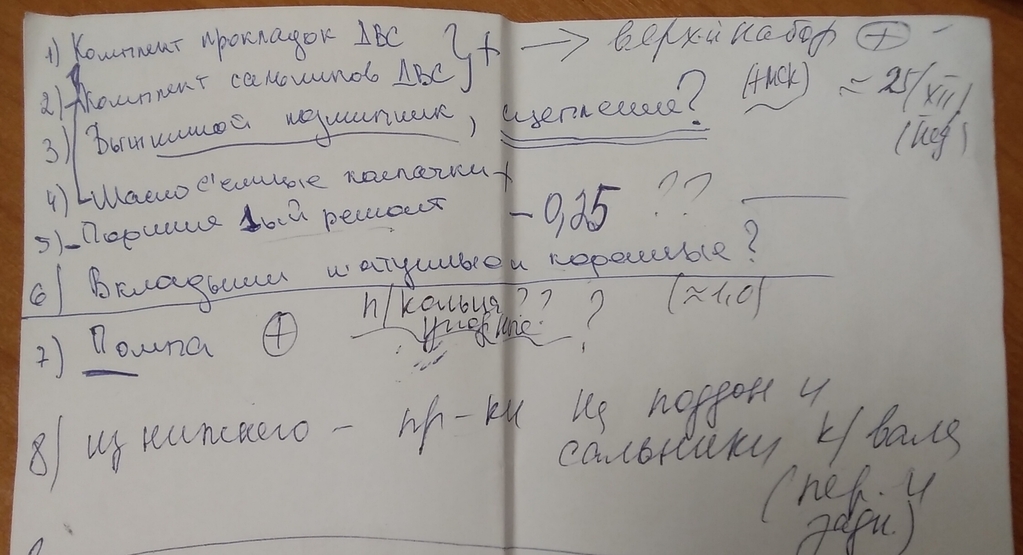 1) Комплект прокладок ДВС } + → верхн набор ⊕ –
2) Комплект сальников ДВС
3) Выжимной подшипник, сцепление? (+МСК) ≈ 25/XII (нед)
4) Маслос'емные колпачки +
5) – Поршня 1ый ремонт – 0,25 ??
6) Вкладыши шатунные и коренные?
п/кольца ?? ? (≈1,0)
7) Помпа ⊕
8) из нижнего – пр-ки на поддон и
сальники к/вала
(пер. и
задн.)